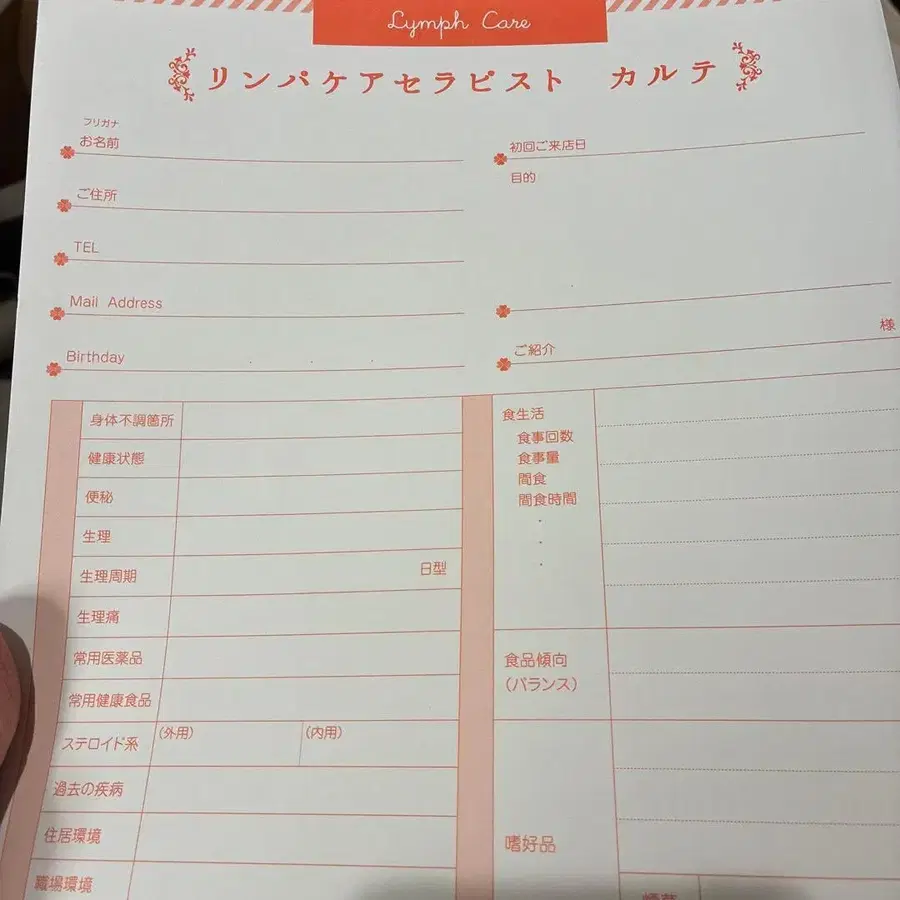 Lymph Care
リンパケアセラピスト カルテ
フリガナ
お名前
ご住所
TEL
Mail Address
Birthday . . .
初回ご来店日
目的
様
ご紹介
身体不調箇所
健康状態
便秘
生理
生理周期 日型
生理痛
常用医薬品
常用健康食品
ステロイド系 (外用) (内用)
過去の疾病
住居環境
職場環境
食生活
食事回数
食事量
間食
間食時間
・
・
・
食品傾向
(バランス)
嗜好品